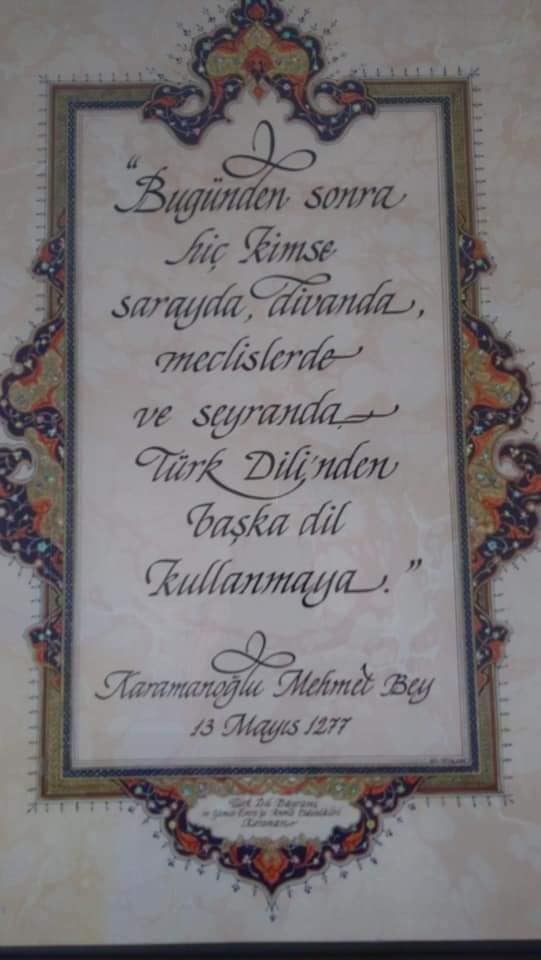 "Bugünden sonra
hiç kimse
sarayda, divanda,
meclislerde
ve seyranda
Türk Dili'nden
başka dil
kullanmaya."
Karamanoğlu Mehmet Bey
13 Mayıs 1277
Türk Dil Bayramı
ve Yunus Emre'yi Anma Etkinlikleri
Karaman